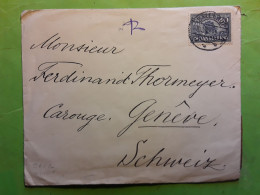 Monsieur
Ferdinand Thormeyer.
Carouge. Genève.
Schweiz.